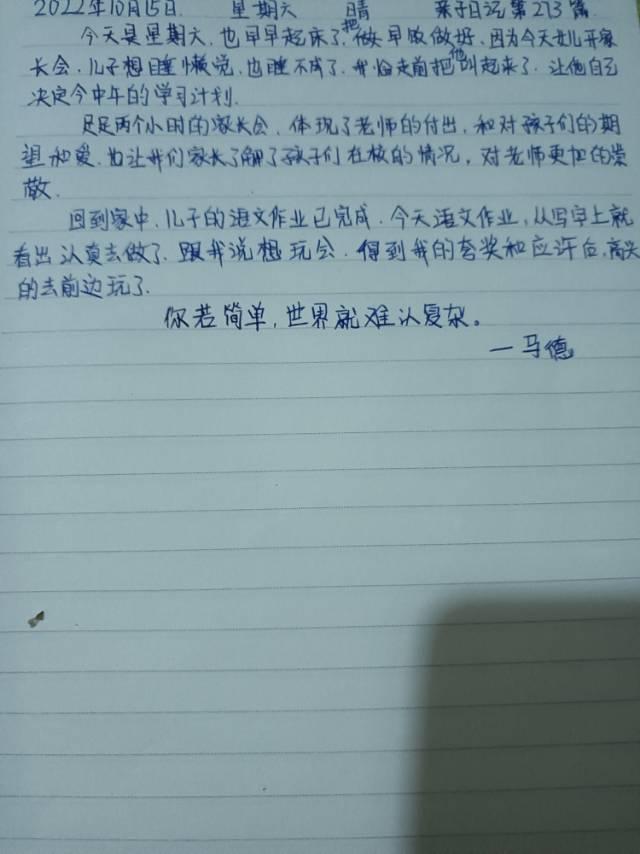 2022年10月15日 星期六 晴 亲子日记第213篇
今天是星期六,也早早起床了,把做早饭做好,因为今天女儿开家
长会,儿子想睡懒觉,也睡不成了,我临走前把他叫起来了,让他自己
决定今中午的学习计划.
足足两个小时的家长会,体现了老师的付出,和对孩子们的期
望和爱,也让我们家长了解了孩子们在校的情况,对老师更加的崇
敬.
回到家中,儿子的语文作业已完成,今天语文作业,从写字上就
看出认真去做了,跟我说想玩会,得到我的夸奖和应许后,高兴
的去前边玩了.
你若简单,世界就难以复杂。
—马德